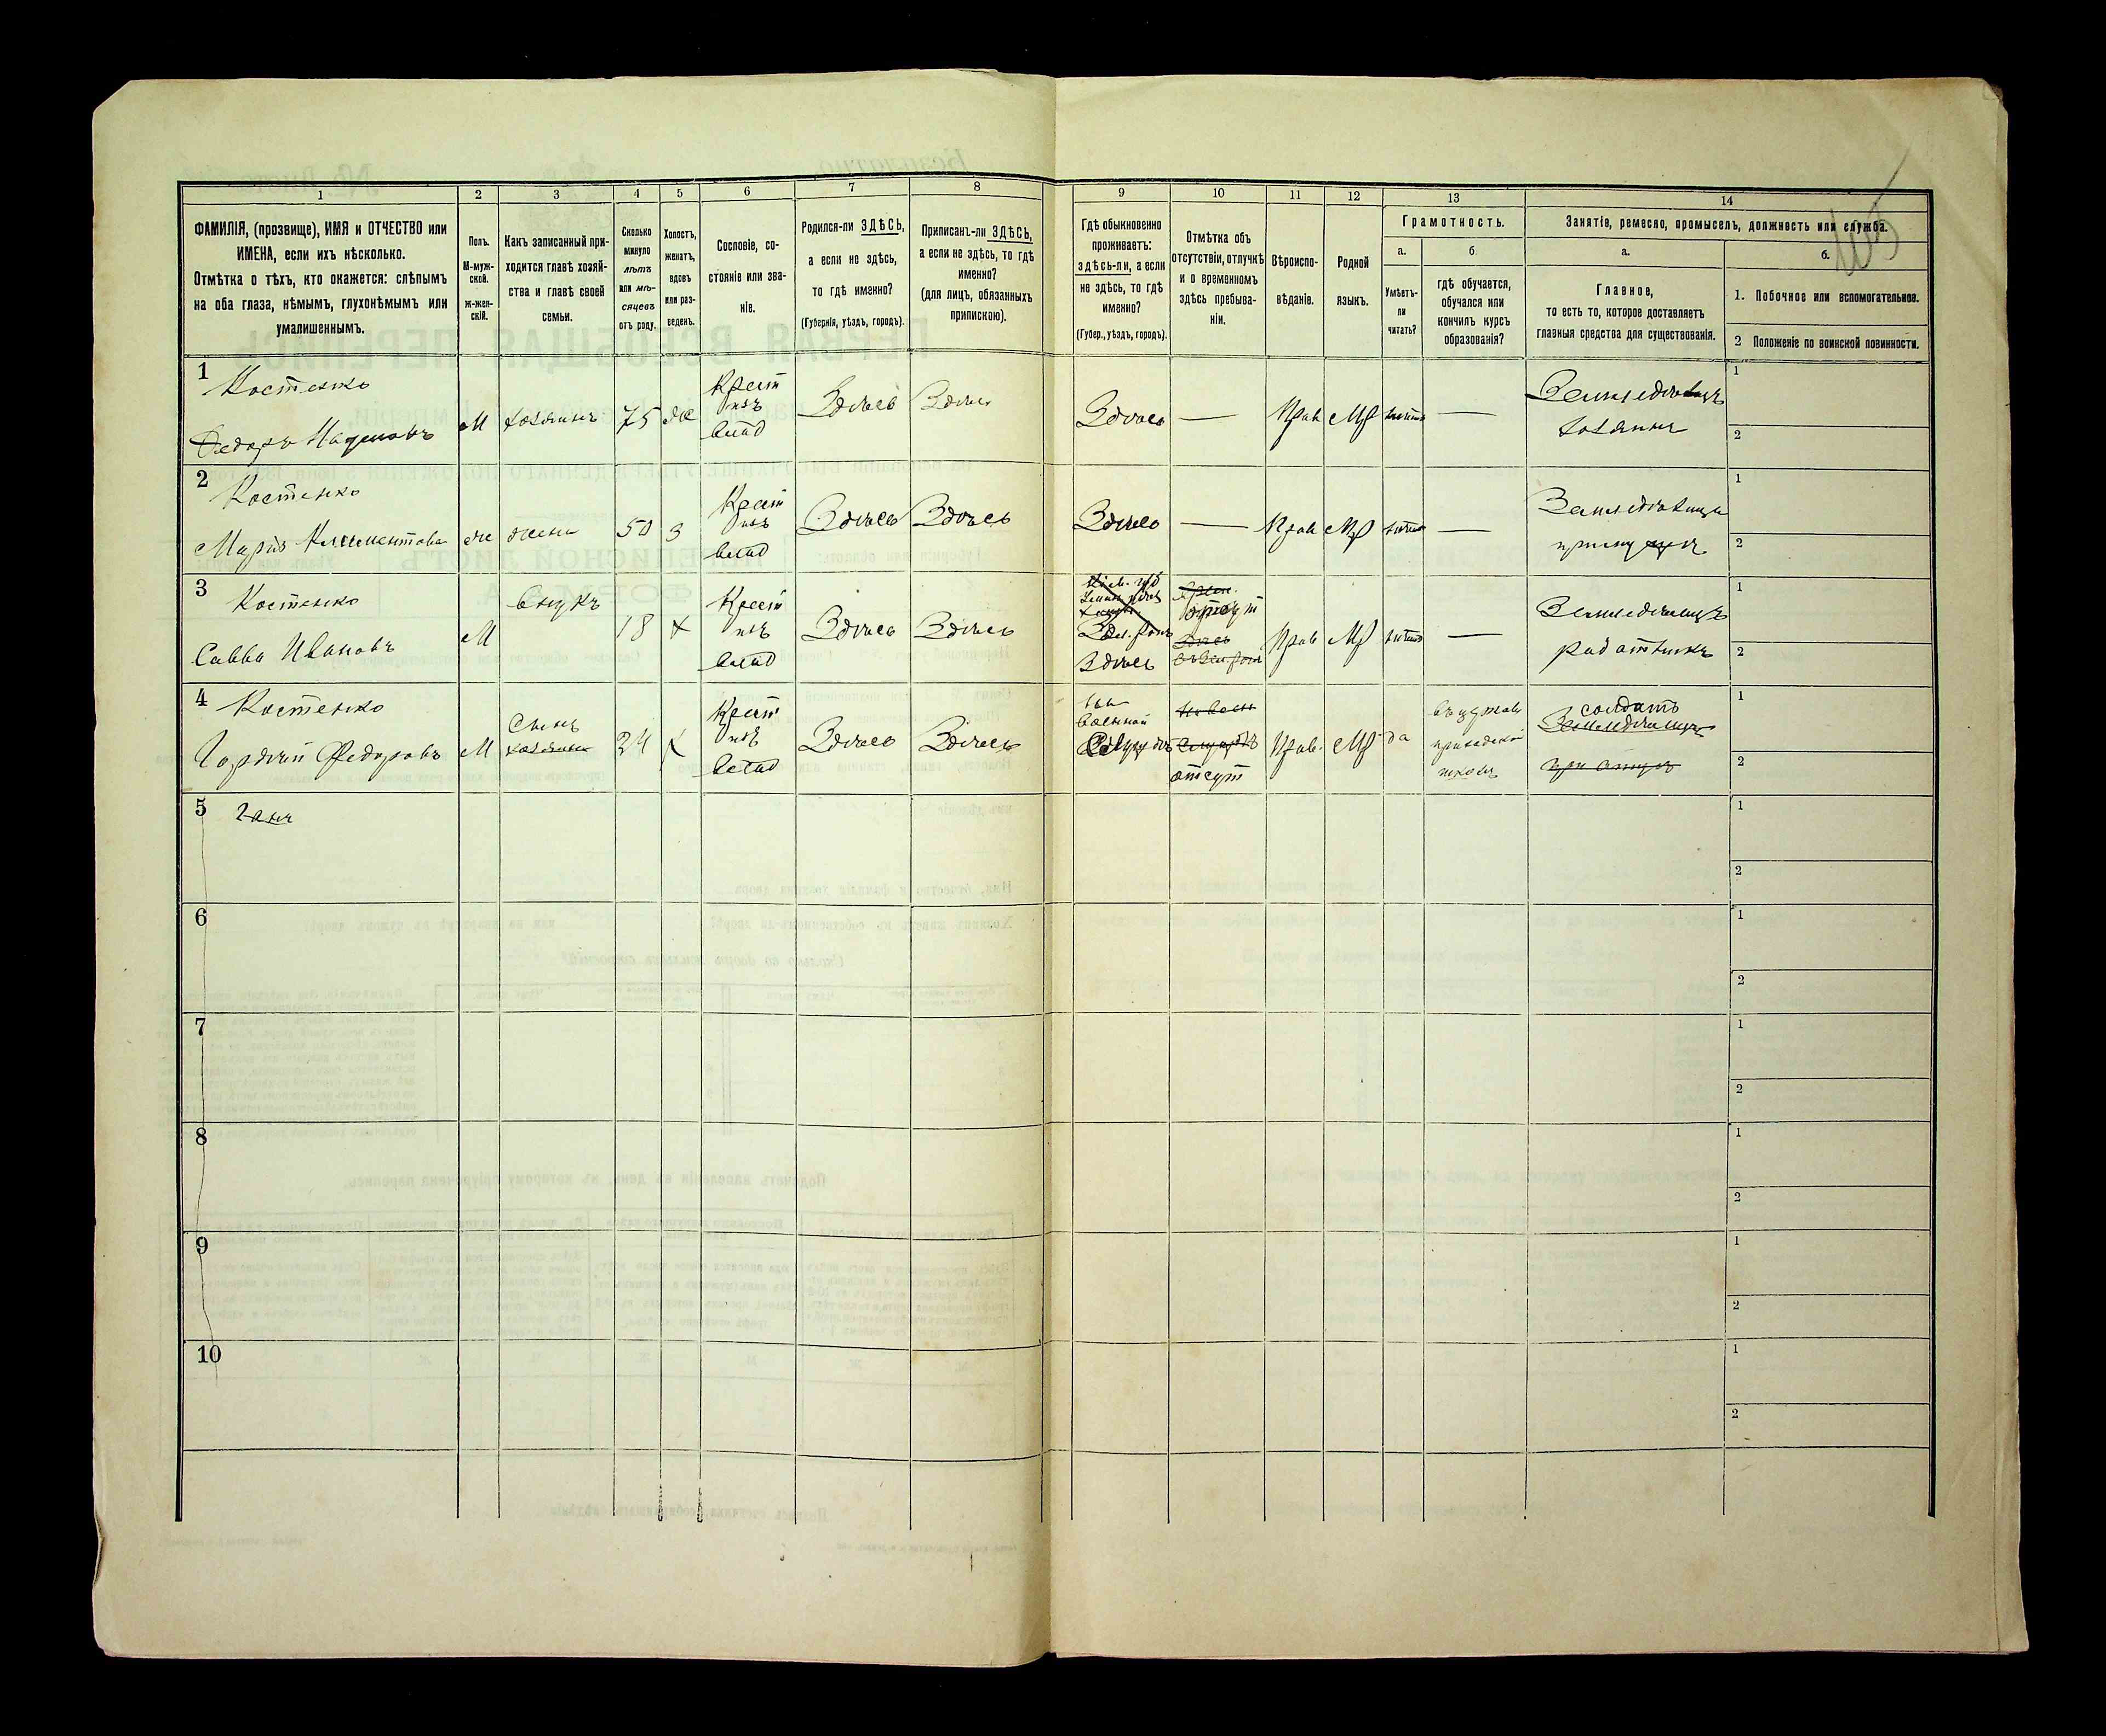 1
2
3
4
5
6
7
8
9
10
11
12
13
14
ФАМИЛІЯ, (прозвище), ИМЯ и ОТЧЕСТВО или
ИМЕНА, если ихъ нѣсколько.
Отмѣтка о тѣхъ, кто окажется: слѣпымъ
на оба глаза, нѣмымъ, глухонѣмымъ или
умалишеннымъ.
Полъ.
М-муж-
ской.
ж-жен-
скій.
Какъ записанный при-
ходится главѣ хозяй-
ства и главѣ своей
семьи.
Сколько
минуло
лѣтъ
или мѣ-
сяцевъ
отъ роду.
Холостъ,
женатъ,
вдовъ
или раз-
веденъ.
Сословіе, со-
стояніе или зва-
ніе.
Родился-ли ЗДѢСЬ,
а если не здѣсь,
то гдѣ именно?
(Губернія, уѣздъ, городъ).
Приписанъ-ли ЗДѢСЬ,
а если не здѣсь, то гдѣ
именно?
(для лицъ, обязанныхъ
припискою).
Гдѣ обыкновенно
проживаетъ:
здѣсь-ли, а если
не здѣсь, то гдѣ
именно?
(Губер., уѣздъ, городъ).
Отмѣтка объ
отсутствіи, отлучкѣ
и о временномъ
здѣсь пребыва-
ніи.
Вѣроиспо-
вѣданіе.
Родной
языкъ.
Грамотность.
а.
Умѣетъ-
ли
читать?
б
гдѣ обучается,
обучался или
кончилъ курсъ
образованія?
Занятіе, ремесло, промыселъ, должность или служба.
а.
Главное,
то есть то, которое доставляетъ
главныя средства для существованія.
б.
1. Побочное или вспомогательное.
2 Положеніе по воинской повинности.
1
Костенко
Федоръ
М
хозяинъ
75
ж
Крест
изъ
влад
Здѣсь
Здѣсь
Здѣсь
—
Прав
Мр
нѣтъ
—
Земледѣлецъ
хозяинъ
1
2
2
Костенко
Марія Климентова
ж
жена
50
з
Крест
изъ
влад
Здѣсь
Здѣсь
Здѣсь
—
Прав
Мр
нѣтъ
—
1
2
3
Костенко
Савва Ивановъ
М
внукъ
18
х
Крест
изъ
влад
Здѣсь
Здѣсь
Здѣсь
Прав
Мр
нѣтъ
—
Земледѣлецъ
работникъ
1
2
4
Костенко
Гордѣй Федоровъ
М
Сынъ
хозяина
24
х
Крест
изъ
влад
Здѣсь
Здѣсь
военной
отсут
Прав.
Мр
да
школѣ
солдатъ
Земледѣлецъ
1
2
5
1
2
6
1
2
7
1
2
8
1
2
9
1
2
10
1
2